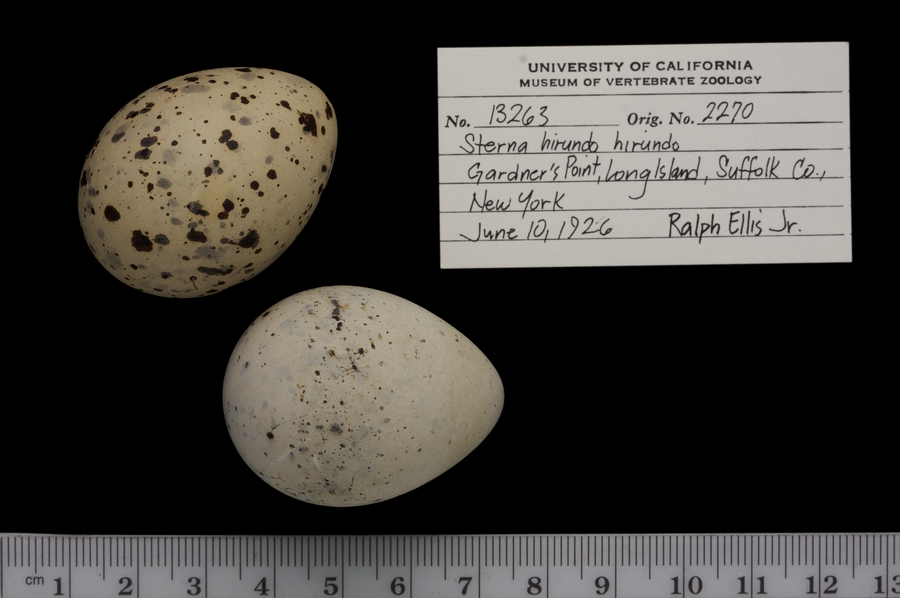 UNIVERSITY OF CALIFORNIA
MUSEUM OF VERTEBRATE ZOOLOGY
No. 13263 Orig. No. 2270
Sterna hirundo hirundo
Gardner's Point, Long Island, Suffolk Co.,
New York
June 10, 1926 Ralph Ellis Jr.
cm 1 2 3 4 5 6 7 8 9 10 11 12 13